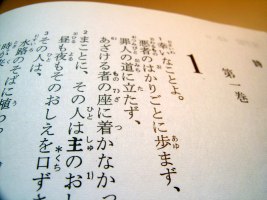 第一巻
1
1幸いなことよ。
悪者のはかりごとに歩まず、
罪人の道に立たず、
あざける者の座に着かなかっ
2まことに、その人は主のおし
昼も夜もそのおしえを口ず
3その人は、
水路のそばに植わっ
時が